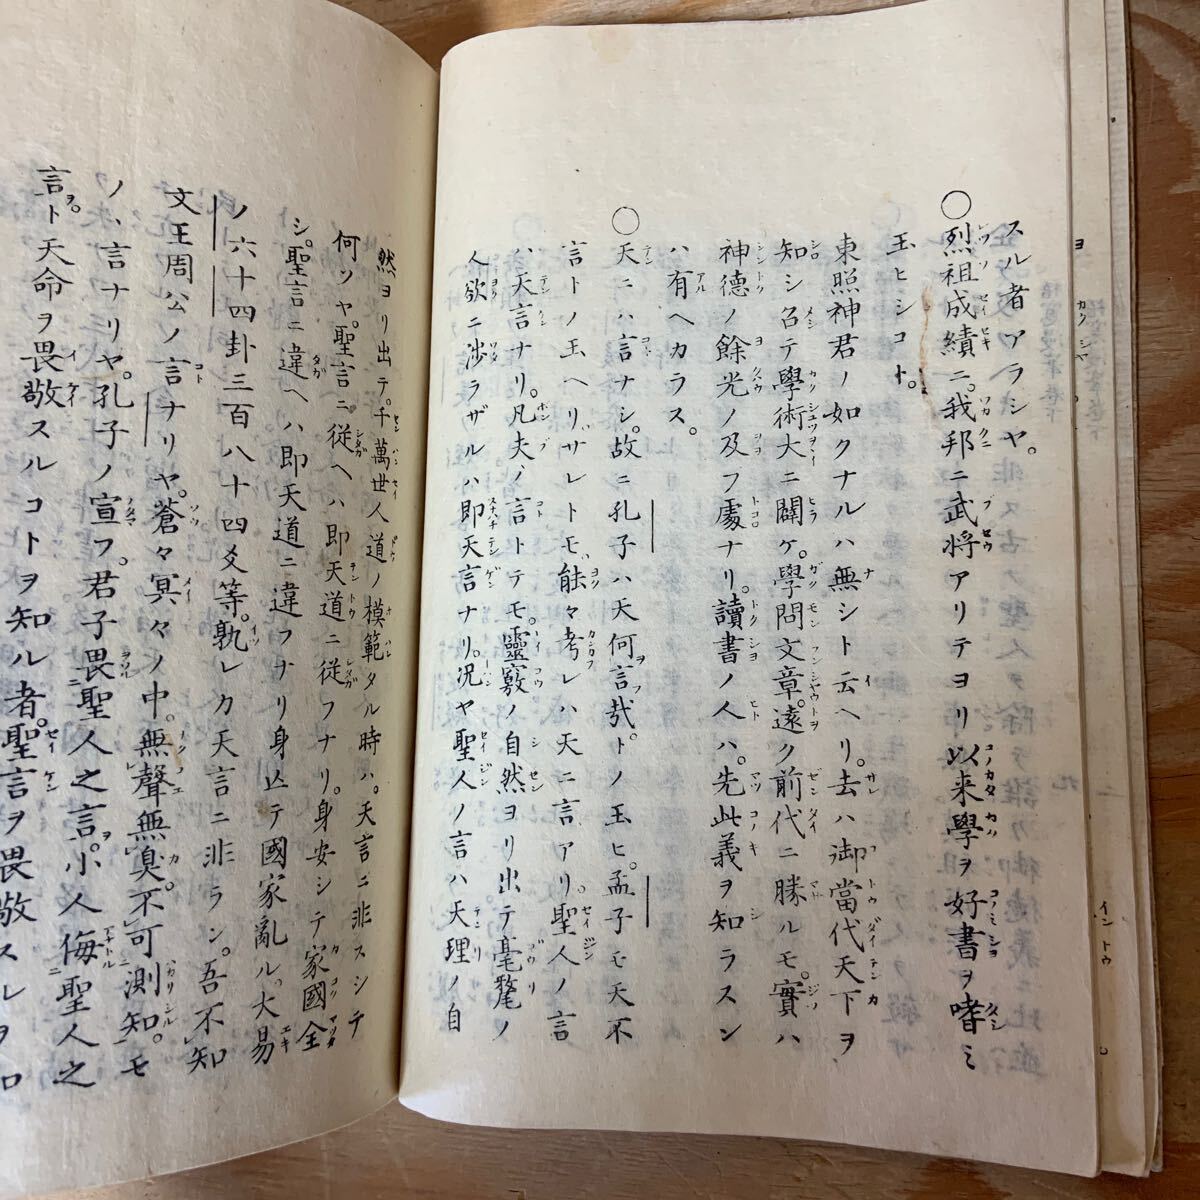 スル者アラシヤ。
○烈祖成績ニ。我邦ニ武將アリテヨリ以来學ヲ好書ヲ嗜ミ
玉ヒシコト。
東照神君ノ如クナルハ無シト云ヘリ。去ハ御當代天下ヲ
知シ召テ學術大ニ闢ケ。學問文章。遠ク前代ニ勝ルモ。實ハ
神德ノ餘光ノ及フ處ナリ。讀書ノ人ハ。先此義ヲ知ラスン
ハ有ヘカラス。
○天ニハ言ナシ。故ニ孔子ハ天何言哉。トノ玉ヒ。孟子モ天不
言トノ玉ヘリ。サレトモ。能々考レハ天ニ言アリ。聖人ノ言
ハ天言ナリ。凡夫ノ言トテモ。靈竅ノ自然ヨリ出テ毫氂ノ
人欲ニ渉ラザルハ即天言ナリ。况ヤ聖人ノ言ハ天理ノ自
然ヨリ出テ。千萬世人道ノ模範タル時ハ。天言ニ非スシテ
何ソヤ。聖言ニ。從ヘハ即天道ニ從フナリ。身安シテ家國全
シ。聖言ニ違ヘハ即天道ニ違フナリ身亡テ國家亂ル。大易
ノ六十四卦三百八十四爻等。孰レカ天言ニ非ラン。吾不知
文王周公ノ言ナリヤ。蒼々冥々ノ中。無聲無臭。不可測知。モ
ノヽ言ナリヤ。孔子ノ宣フ。君子畏聖人之言。小人侮聖人之
言。ト天命ヲ畏敬スルコトヲ知ル者。聖言ヲ畏敬スルヲ知